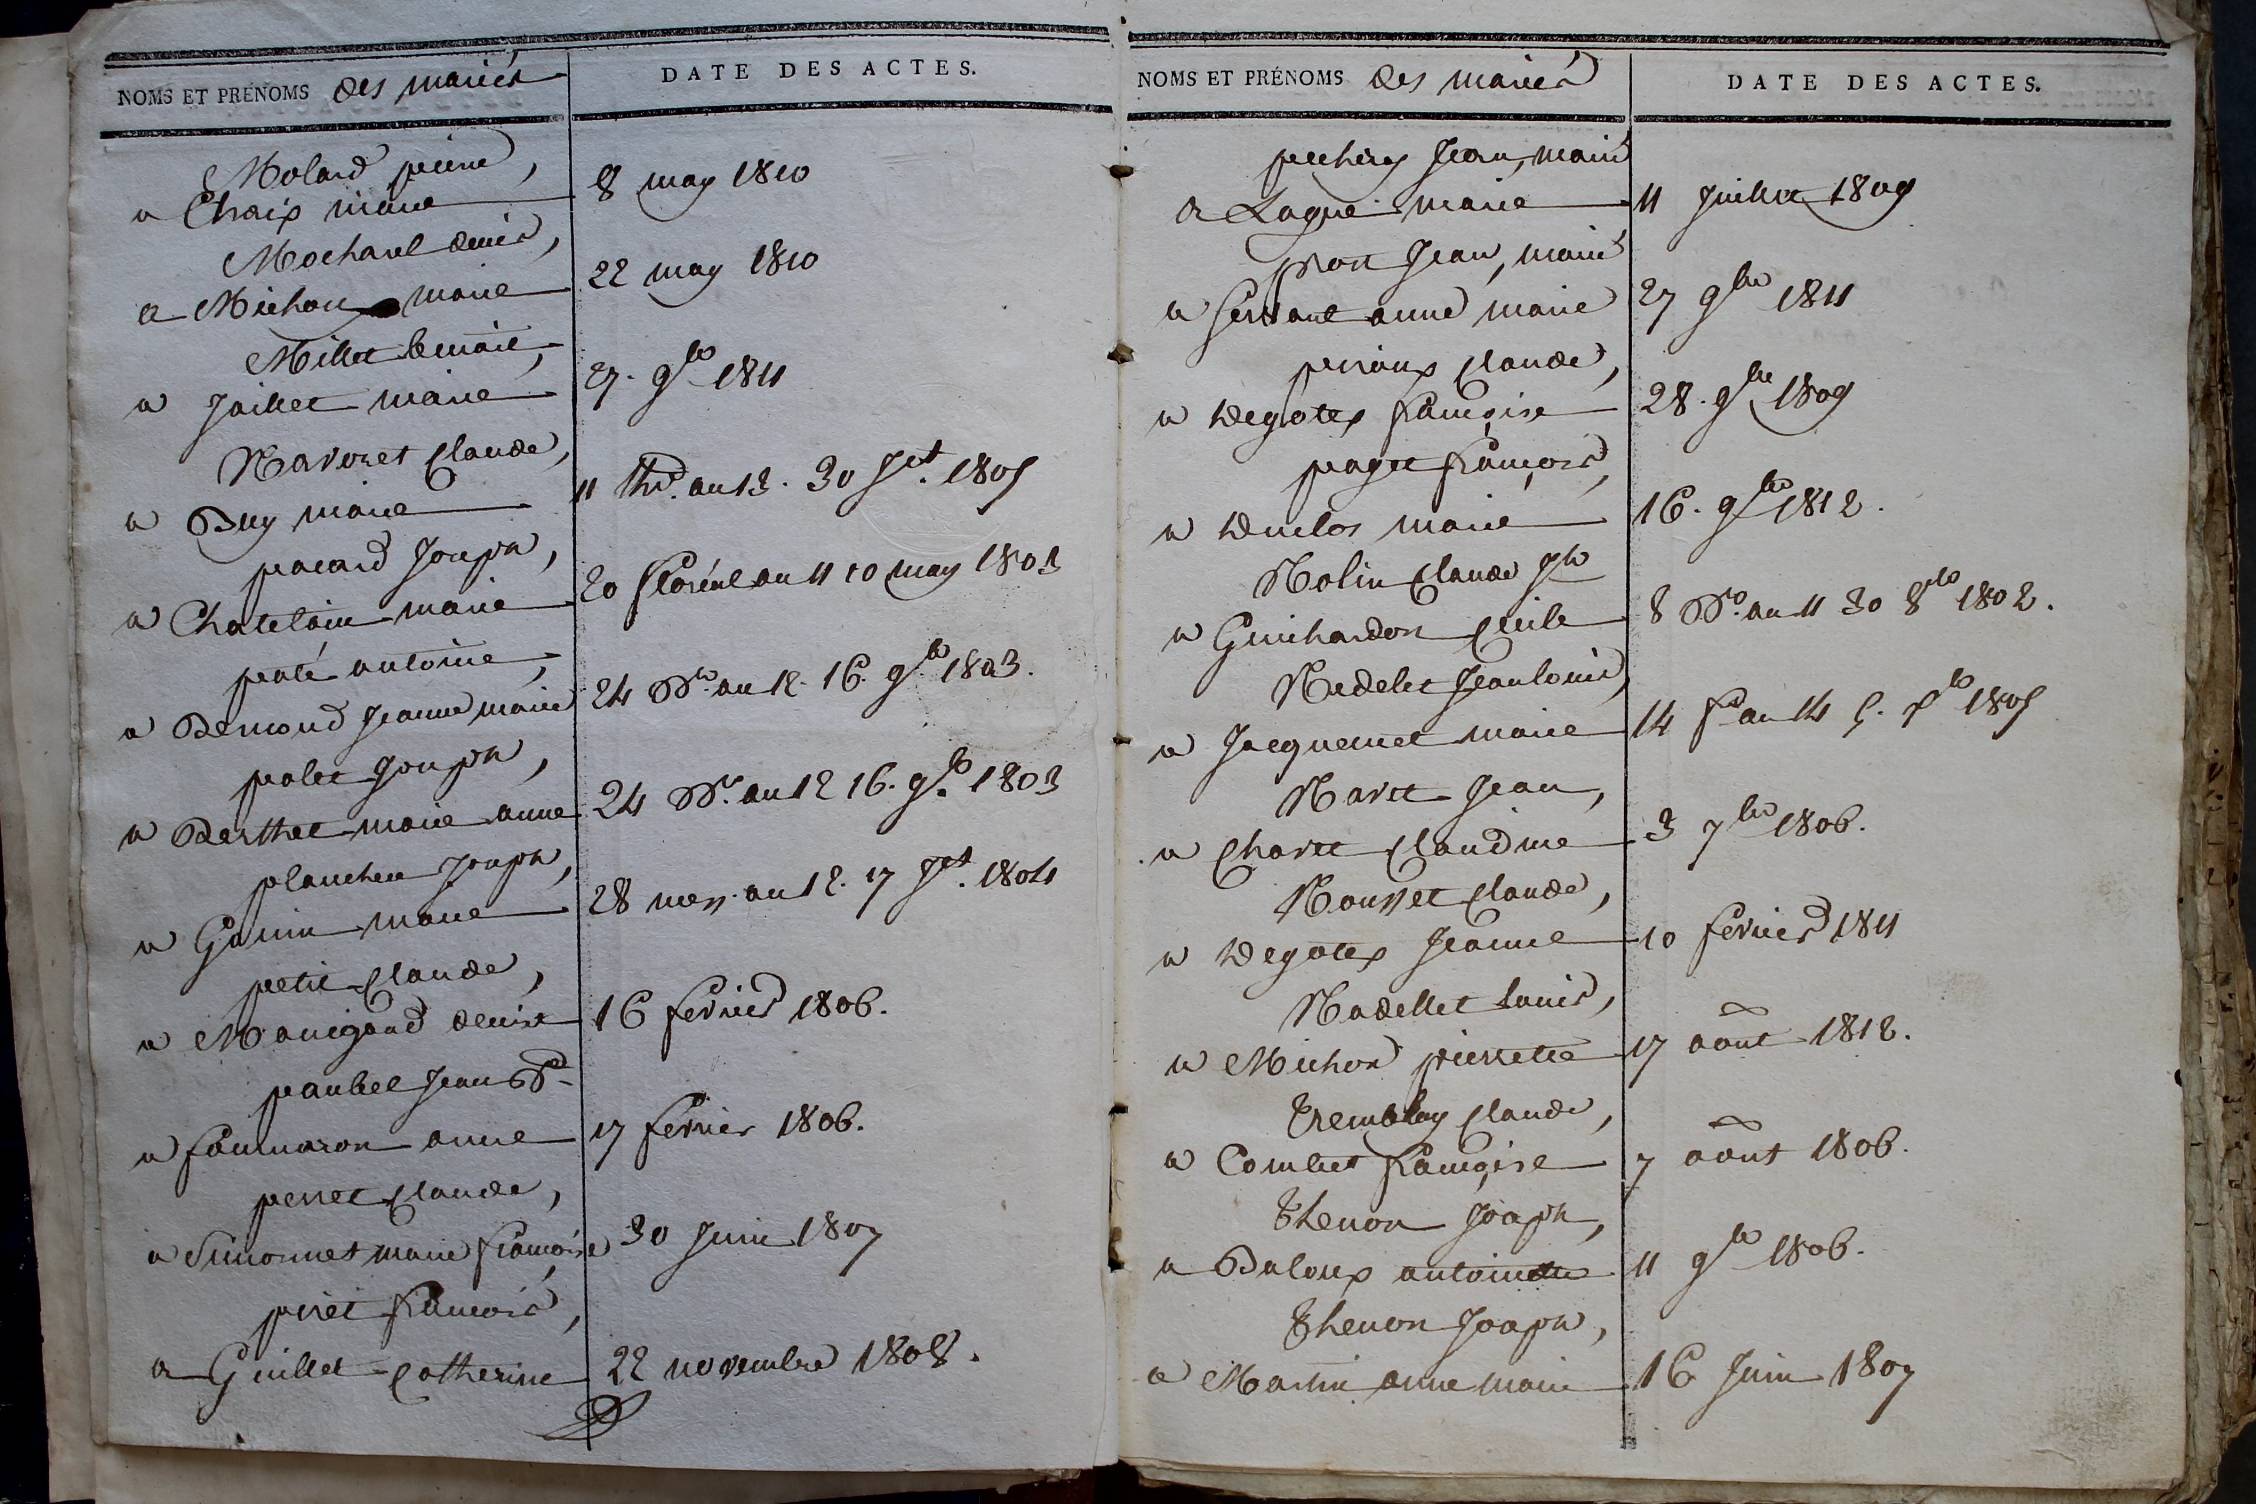 NOMS ET PRÉNOMS des mariés
DATE DES ACTES.
Molard pierre,
a Chaix marie
8 may 1810
Mochard denis,
a Michon marie
22 may 1810
Millet benoit,
a Jaillet marie
27. 9bre 1811
Navoret Claude,
a Buy marie
11 thr. an 13. 30 Jet. 1805
pacard Joseph,
a Chatelain marie
20 floréal an 11 10 may 1803
paté antoine,
a Bernond Jeanne marie
24 Bre. an 12. 16. 9bre 1803.
polet Joseph,
a Berthet marie anne
24 Bre. an 12 16. 9bre 1803
planchen Joseph,
a Gonin marie
28 mess. an 12. 17 Jet. 1804
petit Claude,
a Manigand denise
16 fevrier 1806.
paubel Jean Bte
a anne
17 fevrier 1806.
perret Claude,
a Simonnet marie françoise
30 Juin 1807
piret françois,
a Guillet Catherine
22 novembre 1808.
NOMS ET PRÉNOMS des mariés
DATE DES ACTES.
Jean, marie
a marie
11 Juillet 1809
pron Jean, marie
a Servant anne marie
27 9bre 1811
perraux Claude,
a Degotex françoise
28. 9bre 1809
paget françois,
a Duclos marie
16. 9bre 1812.
Rolin Claude Jh
a Guichardon Cécile
8 Bre. an 11 30 8bre 1802.
Redelet Jean louis,
a Jacquemet marie
14 fre an 14 5. Xbre 1805
Ravet Jean,
a Charet Claudine
3 7bre 1806.
Rousset Claude,
a Degotex Jeanne
10 fevrier 1811
Radellet Louis,
a Michon pierrette
17 août 1812.
Tremblay Claude,
a Combet françoise
7 août 1806.
Thenon Joseph,
a Baloux antoinette
11 9bre 1806.
Thenon Joseph,
a Martin anne marie
16 Juin 1807